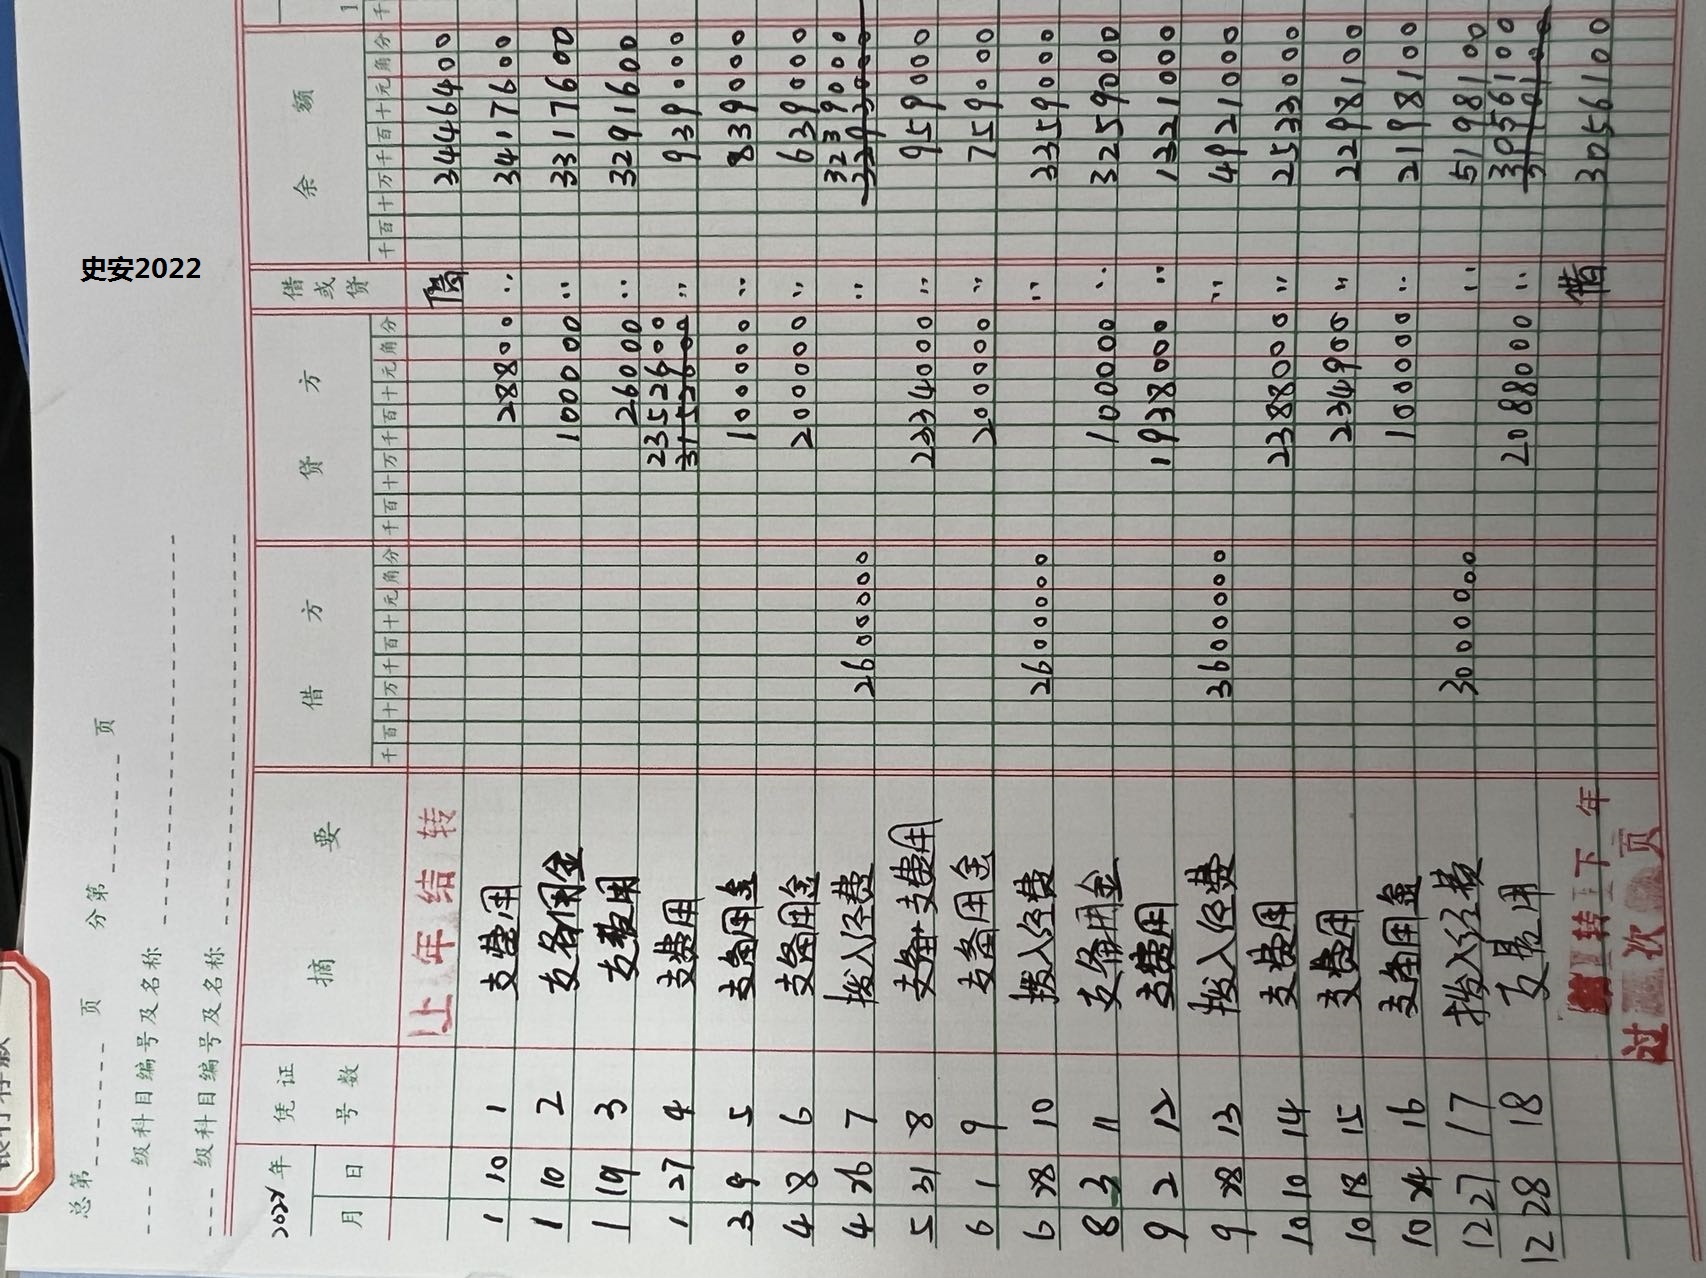 史安2022
总第 页 分第 页
级科目编号及名称
级科目编号及名称
2022年 凭证 摘要 借方 贷方 借或贷 余额
月 日 号数 千百十万千百十元角分 千百十万千百十元角分 千百十万千百十元角分
上年结转 借 3446400
1 10 1 支费用 28800 〃 3417600
1 10 2 支备用金 100000 〃 3317600
1 19 3 支费用 26000 〃 3291600
1 27 4 支费用 2352600 〃 939000
3 9 5 支备用金 100000 〃 839000
4 8 6 支备用金 200000 〃 639000
4 26 7 拨入经费 2600000 〃 3239000
5 31 8 支备+支费用 2334000 〃 959000
6 1 9 支备用金 200000 〃 759000
6 28 10 拨入经费 2600000 〃 3359000
8 3 11 支备用金 100000 〃 3259000
9 2 12 支费用 1938000 〃 1321000
9 28 13 拨入经费 3600000 〃 4921000
10 10 14 支费用 2388000 〃 2533000
10 18 15 支费用 234900 〃 2298100
10 24 16 支备用金 100000 〃 2198100
12 27 17 拨入经费 3000000 〃 5198100
12 28 18 支费用 2088000 〃 3056100
结转下年 借 3056100
过次页